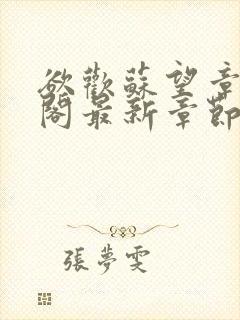 欲歡蘇望章
閣最新章節
張夢雯